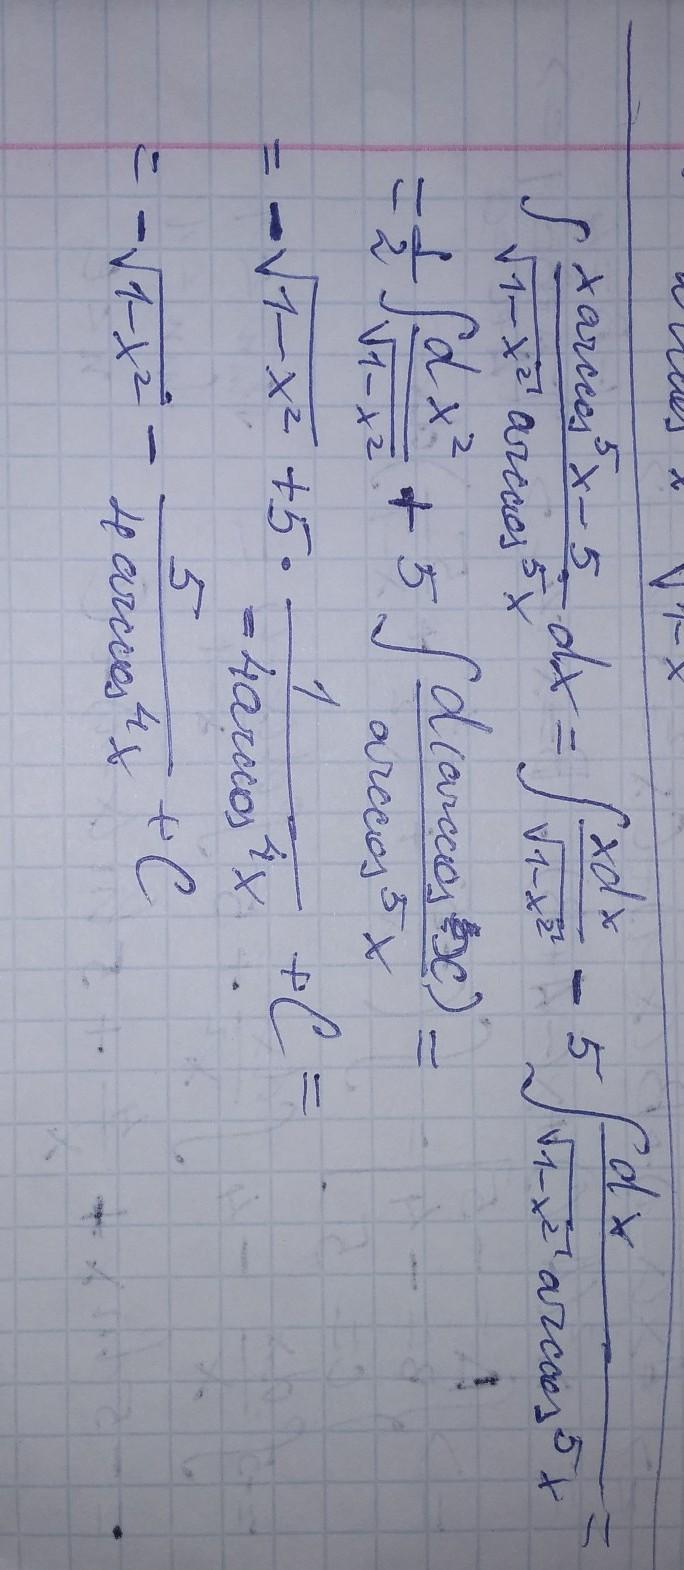 arccos x √1-x
∫ (x arccos⁵x - 5)/(√1-x² arccos⁵x) dx = ∫ xdx/√1-x² - 5 ∫ dx/(√1-x² arccos⁵x) =
= 1/2 ∫ dx²/√1-x² + 5 ∫ d(arccos x)/arccos⁵x =
= -√1-x² + 5 · 1/(-4arccos⁴x) + C =
= -√1-x² - 5/(4arccos⁴x) + C